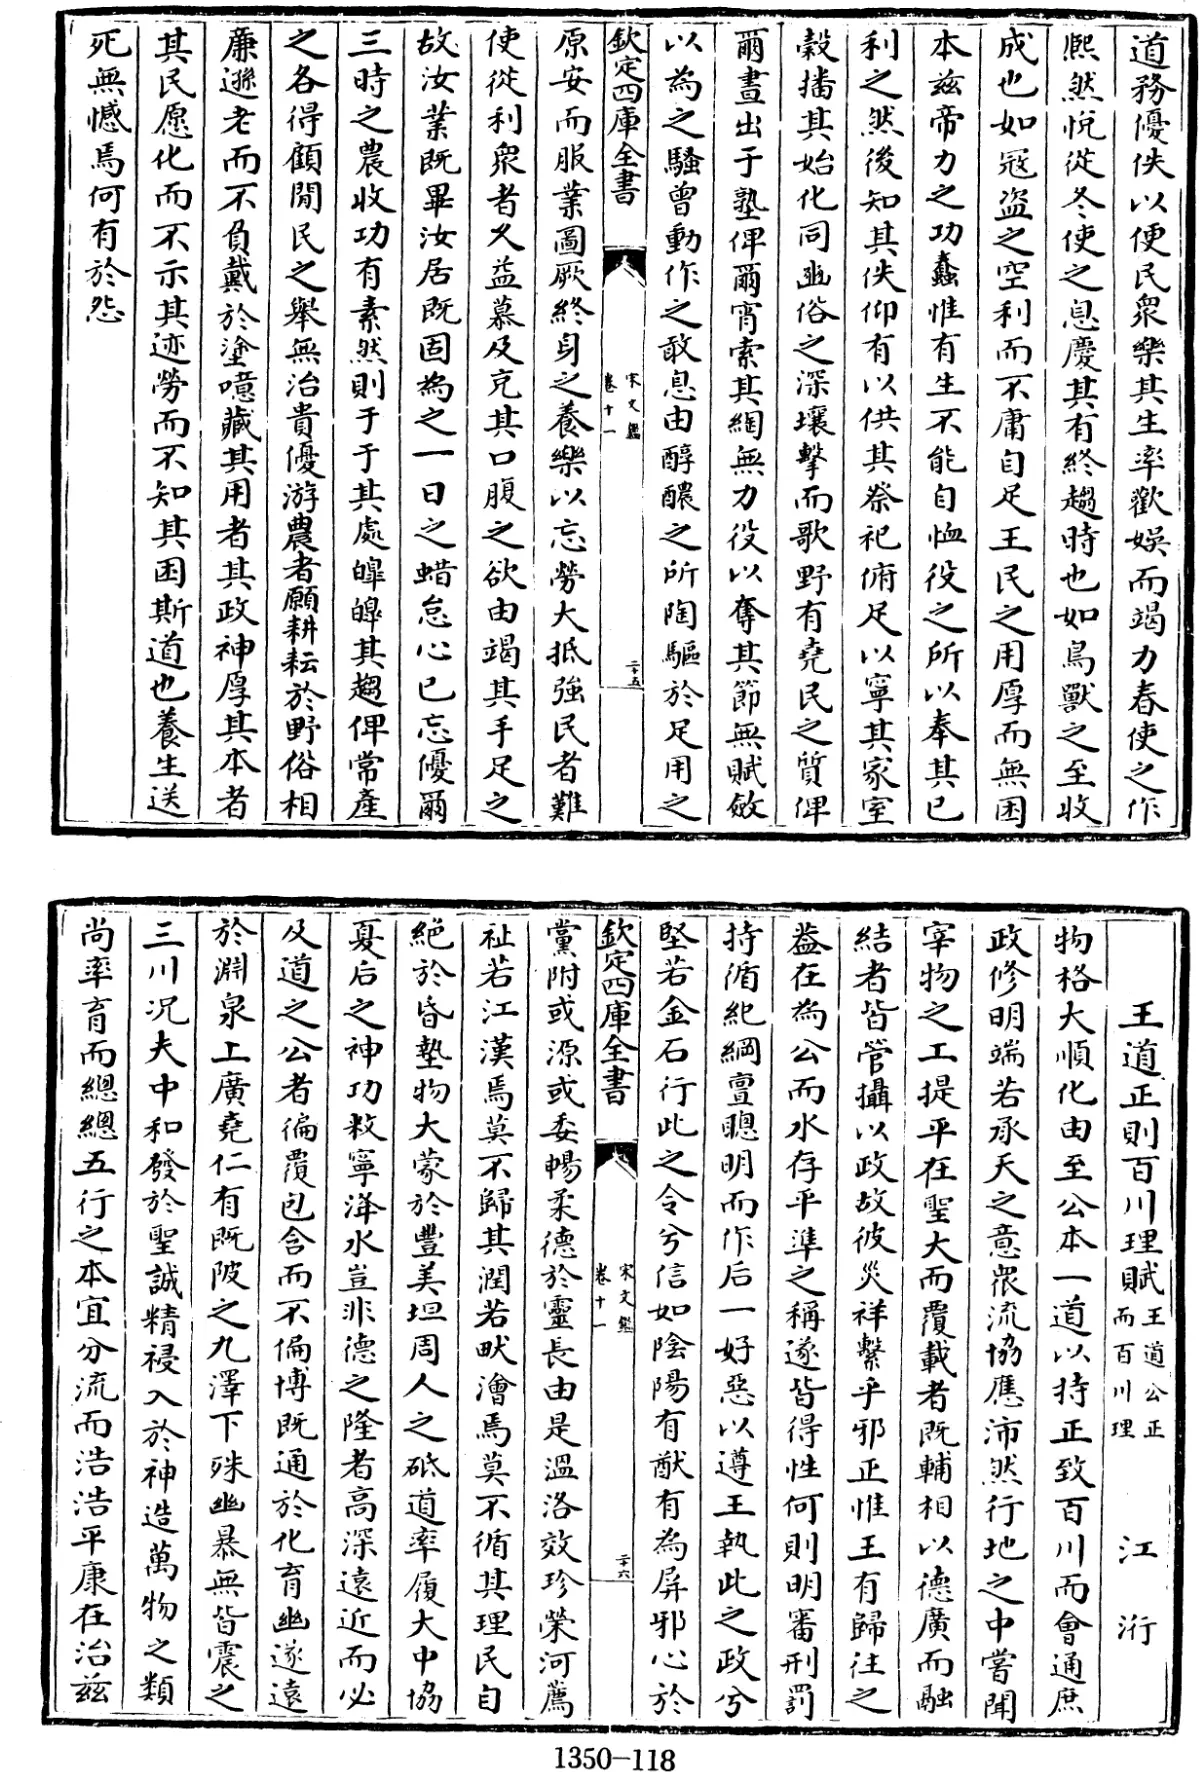 道務優佚以便民衆樂其生率歡娛而竭力春使之作
熈然悅從冬使之息慶其有終趨時也如鳥獸之至收
成也如冦盗之空利而不庸自足王民之用厚而無困
本兹帝力之功蠢惟有生不能自恤役之所以奉其已
利之然後知其佚仰有以供其祭祀俯足以寧其家室
穀播其始化同豳俗之深壤擊而歌野有堯民之質俾
爾晝出于塾俾爾宵索其綯無力役以奪其節無賦斂
以為之騷曾動作之敢息由醇醲之所陶驅於足用之
欽定四庫全書
宋文鑑
卷十一
二十五
原安而服業圖厥終身之養樂以忘勞大抵強民者難
使從利衆者乆益慕及充其口腹之欲由竭其手足之
故汝業既畢汝居既固為之一日之蜡怠心已忘優爾
三時之農收功有素然則于于其處皥皥其趨俾常產
之各得顧閒民之舉無治貴優游農者願耕耘於野俗相
亷遜老而不負戴於塗噫藏其用者其政神厚其本者
其民愿化而不示其迹勞而不知其困斯道也養生送
死無憾焉何有於怨
王道正則百川理賦王道公正而百川理 江衍
物格大順化由至公本一道以持正致百川而會通庶
政修明端若承天之意衆流協應沛然行地之中嘗聞
宰物之工提平在聖大而覆載者既輔相以德廣而融
結者皆管攝以政故彼災祥繫乎邪正惟王有歸往之
葢在為公而水存平準之稱遂皆得性何則明審刑罰
持循紀綱亶聰明而作后一好惡以遵王執此之政兮
堅若金石行此之令兮信如陰陽有猷有為屏邪心於
欽定四庫全書
宋文鑑
卷十一
二十六
黨附或源或委暢柔德於靈長由是温洛效珍榮河薦
祉若江漢焉莫不歸其潤若畎澮焉莫不循其理民自
絶於昏墊物大蒙於豐美坦周人之砥道率履大中協
夏后之神功敉寧洚水豈非德之隆者高深逺近而必
及道之公者偏覆包含而不偏博既通於化育幽遂逺
於淵泉上廣堯仁有既陂之九澤下殊幽暴無皆震之
三川况夫中和發於聖誠精祲入於神造萬物之類
尚率育而總總五行之本宜分流而浩浩平康在治兹
1350-118